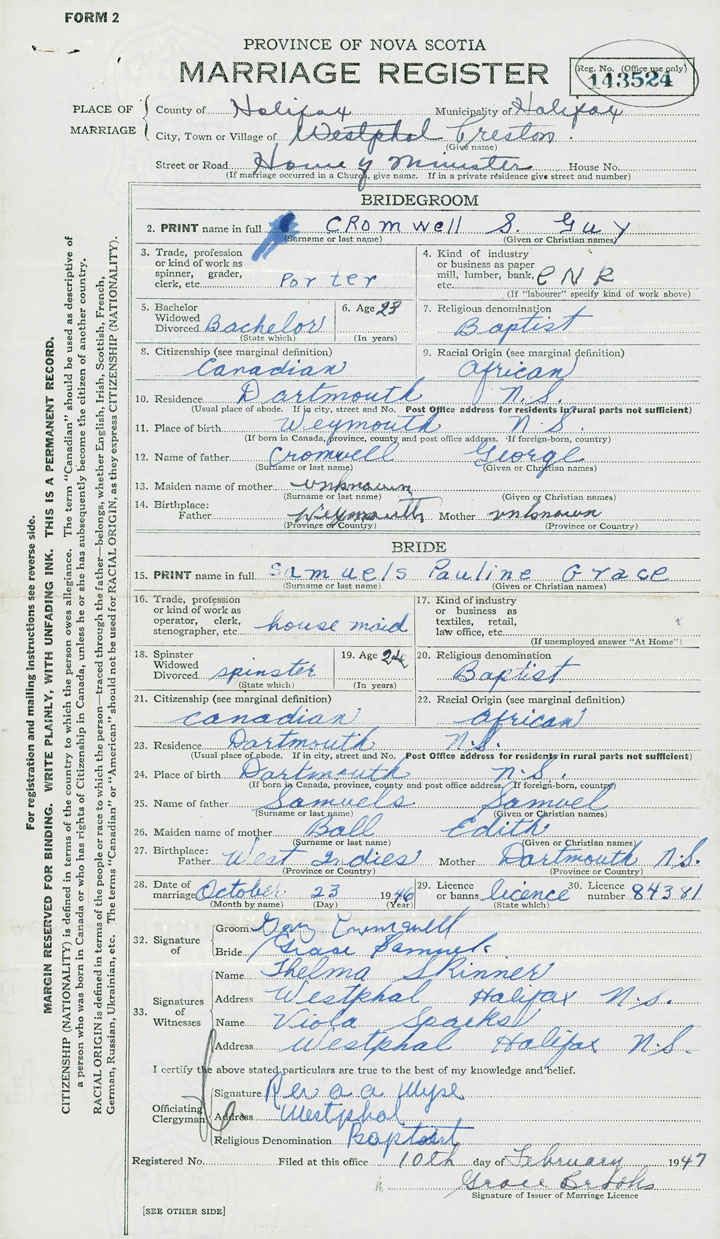 FORM 2
PROVINCE OF NOVA SCOTIA
MARRIAGE REGISTER
Reg. No. (Office use only)
143524
PLACE OF MARRIAGE
County of Halifax Municipality of Halifax
City, Town or Village of Westphal Preston.
(Give name)
Street or Road Home of Minister House No.
(If marriage occurred in a Church, give name. If in a private residence give street and number)
BRIDEGROOM
2. PRINT name in full CROmwell S. Guy
(Surname or last name) (Given or Christian names)
3. Trade, profession or kind of work as spinner, grader, clerk, etc. Porter
4. Kind of industry or business as paper mill, lumber, bank, etc. CNR
(If "labourer" specify kind of work above)
5. Bachelor Widowed Divorced Bachelor
(State which)
6. Age 23
(In years)
7. Religious denomination
Baptist
8. Citizenship (see marginal definition)
Canadian
9. Racial Origin (see marginal definition)
African
10. Residence Dartmouth N.S.
(Usual place of abode. If in city, street and No. Post Office address for residents in rural parts not sufficient)
11. Place of birth Weymouth N.S.
(If born in Canada, province, county and post office address. If foreign-born, country)
12. Name of father Cromwell George
(Surname or last name) (Given or Christian names)
13. Maiden name of mother unknown
(Surname or last name) (Given or Christian names)
14. Birthplace: Father Weymouth Mother unknown
(Province or Country) (Province or Country)
BRIDE
15. PRINT name in full Samuels Pauline Grace
(Surname or last name) (Given or Christian names)
16. Trade, profession or kind of work as operator, clerk, stenographer, etc. house maid
17. Kind of industry or business as textiles, retail, law office, etc.
(If unemployed answer "At Home")
18. Spinster Widowed Divorced spinster
(State which)
19. Age 24
(In years)
20. Religious denomination
Baptist
21. Citizenship (see marginal definition)
Canadian
22. Racial Origin (see marginal definition)
African
23. Residence Dartmouth N.S.
(Usual place of abode. If in city, street and No. Post Office address for residents in rural parts not sufficient)
24. Place of birth Dartmouth N.S.
(If born in Canada, province, county and post office address. If foreign-born, country)
25. Name of father Samuels Samuel
(Surname or last name) (Given or Christian names)
26. Maiden name of mother Ball Edith
(Surname or last name) (Given or Christian names)
27. Birthplace: Father West Indies Mother Dartmouth N.S.
(Province or Country) (Province or Country)
28. Date of marriage October 23 1946
(Month by name) (Day) (Year)
29. Licence or banns licence
(State which)
30. Licence number 84381
32. Signature of
Groom Guy Cromwell
Bride Grace Samuels
33. Signatures of Witnesses
Name Thelma Skinner
Address Westphal Halifax N.S.
Name Viola Sparks
Address Westphal Halifax N.S.
I certify the above stated particulars are true to the best of my knowledge and belief.
Officiating Clergyman
Signature Rev a a Wyse
Address Westphal
Religious Denomination Baptist
Registered No. Filed at this office 10th day of February 1947
Grace Brooks
Signature of Issuer of Marriage Licence
[SEE OTHER SIDE]
For registration and mailing instructions see reverse side.
MARGIN RESERVED FOR BINDING. WRITE PLAINLY, WITH UNFADING INK. THIS IS A PERMANENT RECORD.
CITIZENSHIP (NATIONALITY) is defined in terms of the country to which the person owes allegiance. The term "Canadian" should be used as descriptive of
a person who was born in Canada or who has rights of Citizenship in Canada, unless he or she has subsequently become the citizen of another country.
RACIAL ORIGIN is defined in terms of the people or race to which the person—traced through the father—belongs, whether English, Irish, Scottish, French,
German, Russian, Ukrainian, etc. The terms "Canadian" or "American" should not be used for RACIAL ORIGIN, as they express CITIZENSHIP (NATIONALITY).